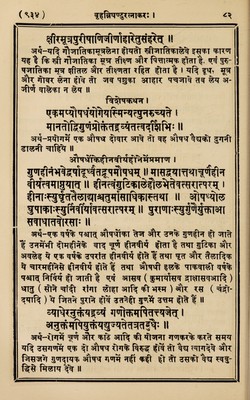 (९३४) बृहन्निघण्टुरत्नाकरः । ८२
क्षीरमूत्रपुरीषाणिजीर्णाहारेतुसंहरेत् ॥
अर्थ-यदि गौजातिकामूत्रलेना होयतो स्त्रीजातिकालेवे इसका कारण
यह है कि स्त्री गौजातिका मूत्र तीक्ष्ण और पित्तात्मक होता है. एवं पुरु-
षजातिका मूत्र शीतल और तीक्ष्णता रहित होता है । यदि दूध, मूत्र
और गोबर लेना होय तो जब पशुका आहार पचजावे तब लेय अ-
जीर्ण वालेका न लेय ॥
विशेषकथन
एकमप्योषधंयोगेयस्मिन्यत्पुनरुच्यते ।
मानतोद्विगुणंप्रोक्तंतद्द्रव्यंतत्त्वदर्शिभिः ॥
अर्थ-प्रयोगमें एक औषध दोवार आवे तो वह औषध वैद्यको दुगनी
डालनी चाहिये ॥
औषधोंकेहीनवीर्यहोनेमेंप्रमाण ॥
गुणहीनंभवेद्वर्षादूर्ध्वंतद्रूपमौषधम् ॥ मासद्वयात्तथाचूर्णंहीन
वीर्यत्वमाप्नुयात् ॥ हीनत्वंगुटिकालेहोलभेतेवत्सरात्परम् ॥
हीनाःस्युर्घृततैलाद्याश्चतुर्मासाधिकास्तथा ॥ औषध्योल
घुपाकाःस्युर्निर्वीर्यावत्सरात्परम् ॥ पुराणाःस्युर्गुणैर्युक्ताआ
सवाधातवोरसाः ॥
अर्थ-एक वर्षके पश्चात् औषधोंका तेज और उनके गुणहीन हो जाते
हैं उनमेंभी दोमहीनेके बाद चूर्ण हीनवीर्य होता है तथा गुटिका और
अवलेह ये एक वर्षके उपरांत हीनवीर्य होते हैं तथा घृत और तैलादिक
ये चारमहीनेमें हीनवीर्य होते हैं तथा औषधी हलके पाकवाली वर्षके
पश्चात् निर्वीर्य हो जाती है एवं आसव (कुमार्यासव द्राक्षासवआदि )
धातु ( सोने चांदी रांगा लोहा आदि की भस्म ) और रस ( चंद्रो-
दयादि ) ये जितने पुराने होवें उतनेही गुणमें उत्तम होते हैं ॥
व्याधेरयुक्तंयद्द्रव्यं गणोक्तमपितत्त्यजेत् ।
अनुक्तमपियुक्तंयद्युज्यतेतत्रतद्बुधैः ॥
अर्थ-रोगमें चूर्ण और काढे आदि की योजना गणकरके करते समय
यदि उसगणमें एक दो औषध रोगके विरुद्ध होंय तो वैद्य त्यागदेवे और
जिसजगे गुणदायक औषध गणमें नहीं कही हो तो उसको वैद्य स्वबु-
द्धिसे मिलाय देवे ॥